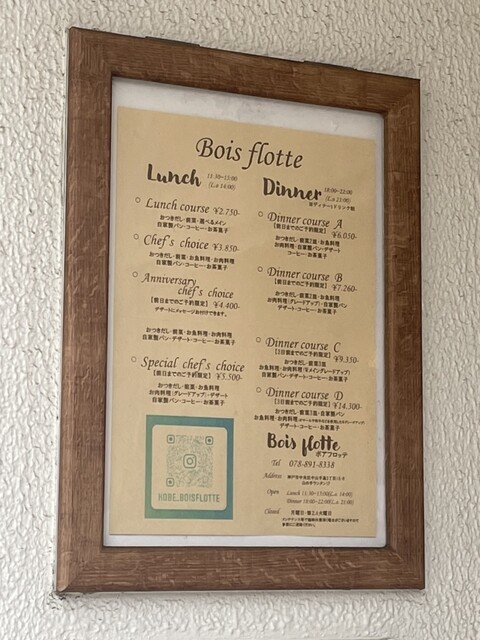 Bois flotte
Lunch 11:30~15:00
(L.o 14:00)
Lunch course ¥2.750-
おつきだし・前菜・選べるメイン
自家製パン・コーヒー・お茶菓子
Chef's choice ¥3.850-
おつきだし・前菜・お魚料理・お肉料理
自家製パン・コーヒー・お茶菓子
Anniversary
chef's choice
【前日までのご予約限定】 ¥4.400-
デザートにメッセージお付けできます。
おつきだし・前菜・お魚料理・お肉料理
自家製パン・デザート・コーヒー・お茶菓子
Special chef's choice
【前日までのご予約限定】 ¥5.500-
おつきだし・前菜・お魚料理
お肉料理(グレードアップ)・デザート
自家製パン・コーヒー・お茶菓子
KOBE_BOISFLOTTE
Dinner 18:00~22:00
(L.o 21:00)
Dinner course A
【前日までのご予約限定】 ¥6.050-
おつきだし・前菜2皿・お魚料理
お肉料理・自家製パン・デザート
コーヒー・お茶菓子
Dinner course B
【前日までのご予約限定】 ¥7.260-
おつきだし・前菜2皿・お魚料理
お肉料理(グレードアップ)・自家製パン
デザート・コーヒー・お茶菓子
Dinner course C
【3日前までのご予約限定】 ¥9.350-
おつきだし・前菜3皿
お魚料理・お肉料理(Wメイングレードアップ)
自家製パン・デザート・コーヒー・お茶菓子
Dinner course D
【3日前までのご予約限定】 ¥14.300-
おつきだし・前菜3皿・自家製パン
お魚料理・お肉料理
デザート・コーヒー・お茶菓子
Bois flotte
ボアフロッテ
Tel 078-891-8338
Address 神戸市中央区中山手通
Open Lunch 11:30~15:00(L.o 14:00)
Dinner 18:00~22:00(L.o 21:00)
Closed 月曜日・第2火曜日